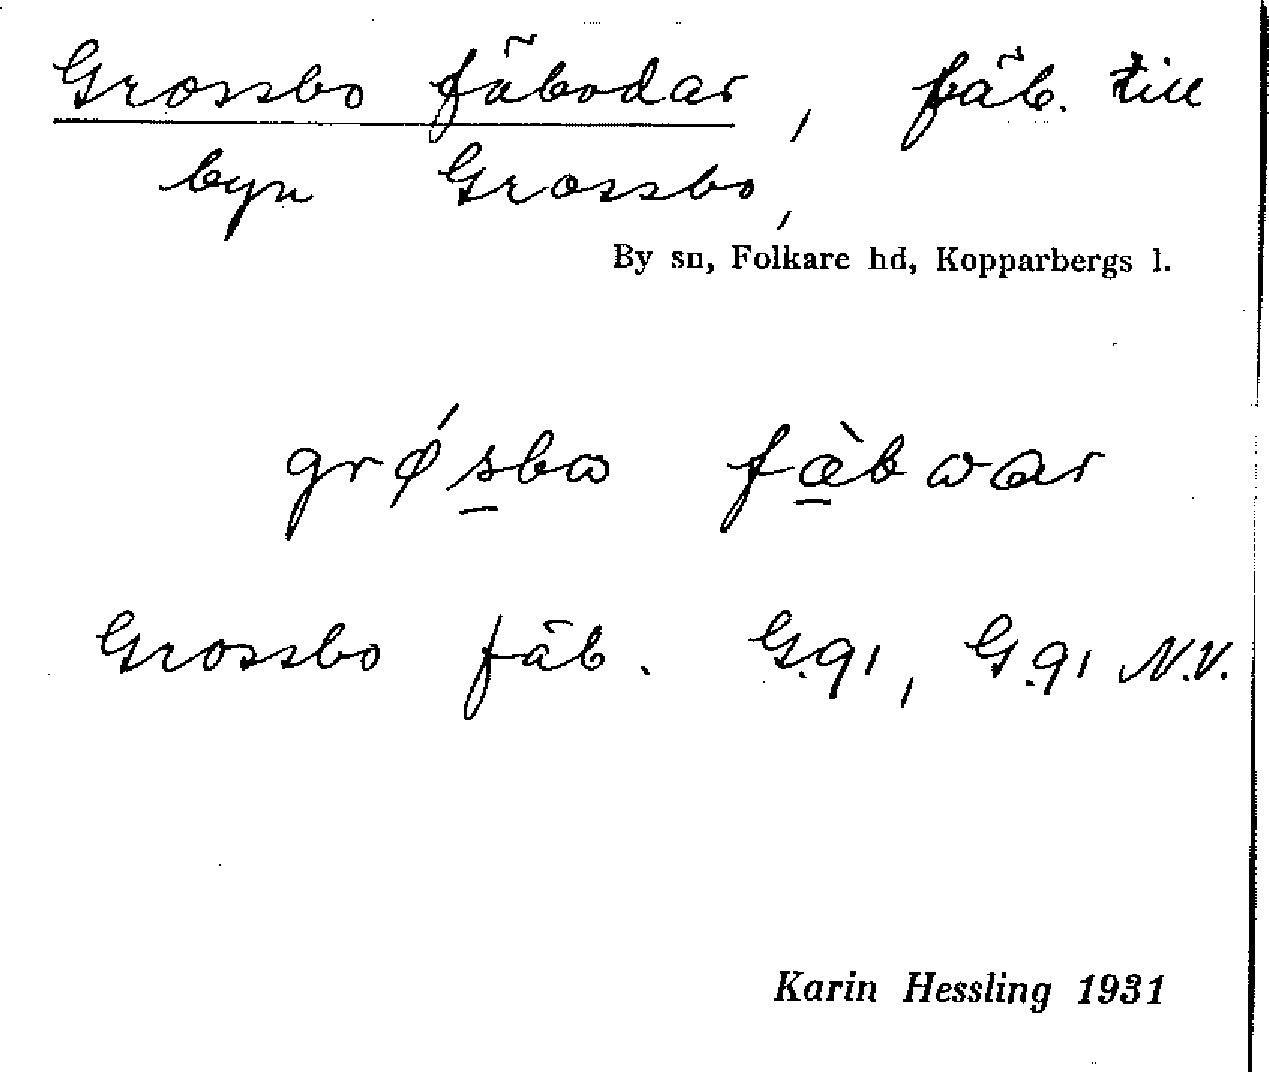 Grossbo fäbodar, fäb. till
byn Grossbo,
By sn, Folkare hd, Kopparbergs l.
grǿs̲bω fæ̲̀bωar
Grossbo fäb. G.91, G.91 N.V.
Karin Hessling 1931